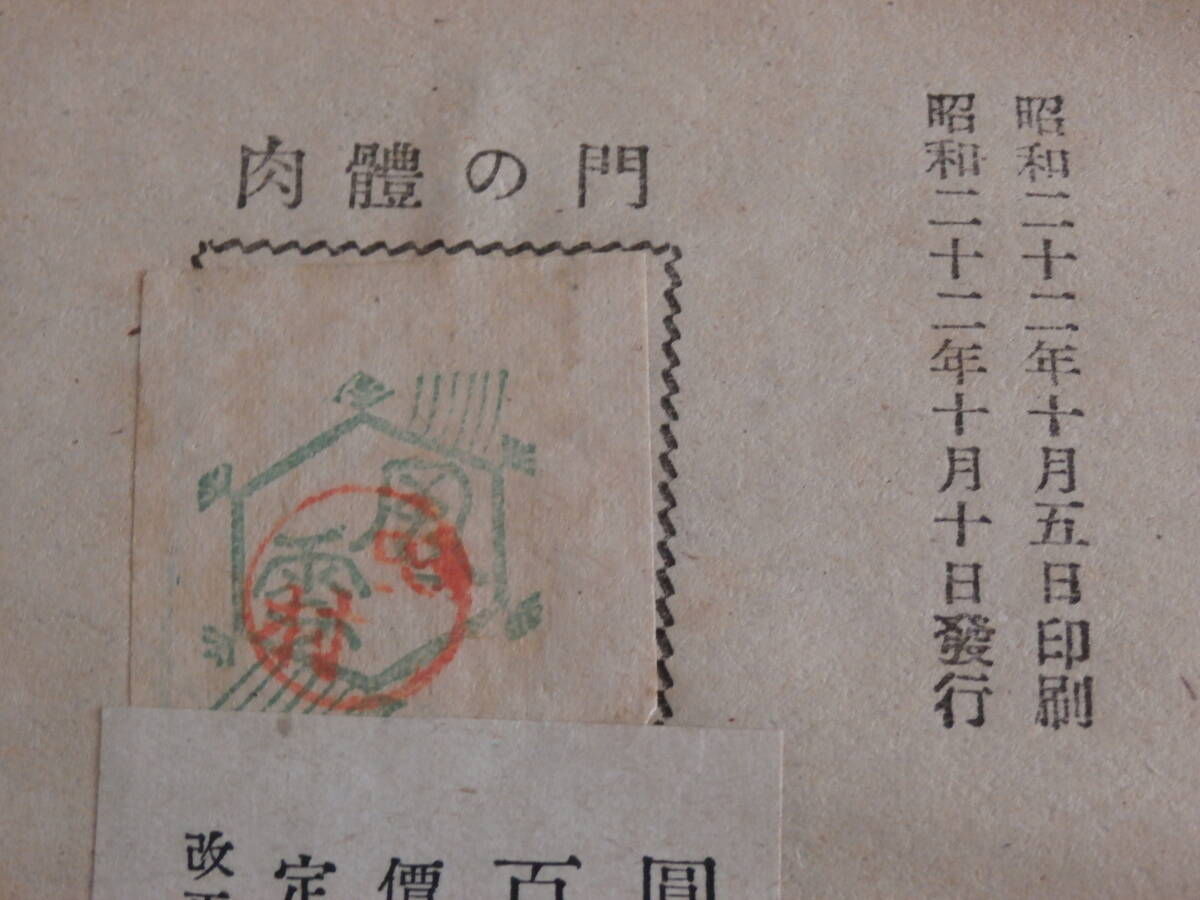 昭和二十二年十月五日印刷
昭和二十二年十月十日發行
肉體の門
風雪
田村
改
定價百圓